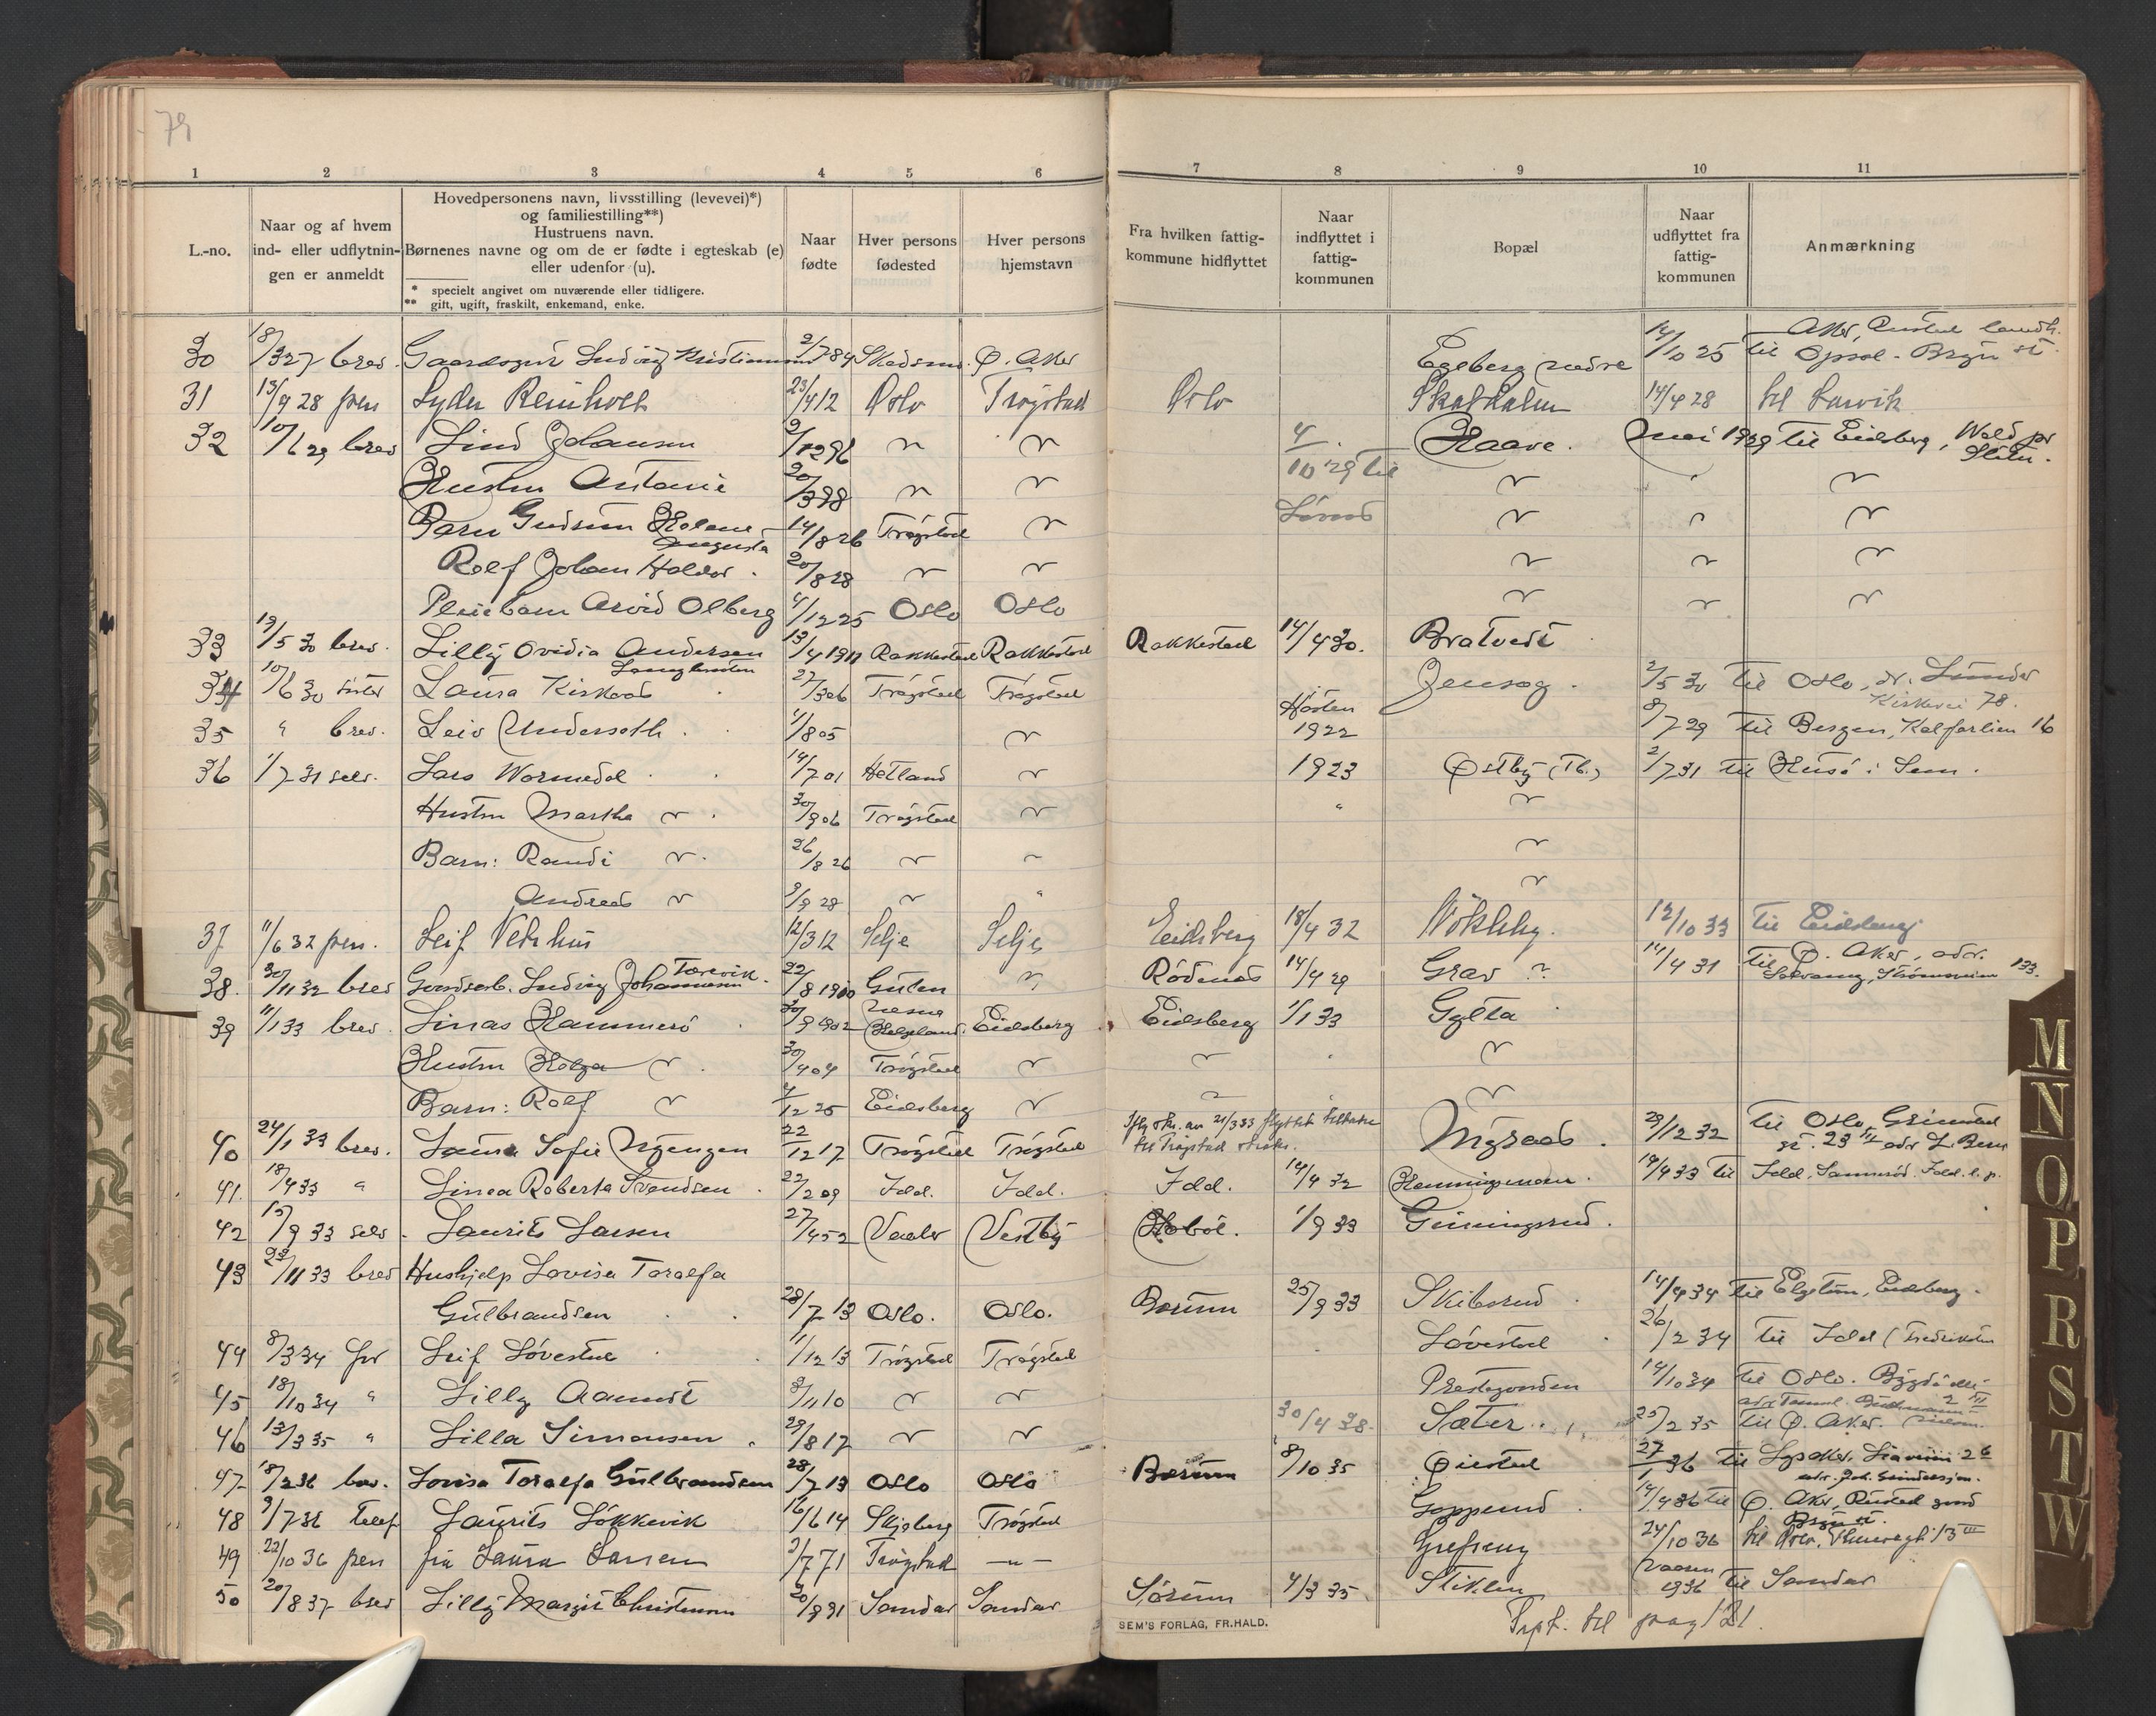 79
1 2 3 4 5 6 7 8 9 10 11
L.-no.
Naar og af hvem
ind- eller udflytnin-
gen er anmeldt
Hovedpersonens navn, livsstilling (levevei)*)
og familiestilling**)
Hustruens navn.
Børnenes navne og om de er fødte i egteskab (e)
eller udenfor (u).
* specielt angivet om nuværende eller tidligere.
** gift, ugift, fraskilt, enkemand, enke.
Naar
fødte
Hver persons
fødested
Hver persons
hjemstavn
Fra hvilken fattig-
kommune hidflyttet
Naar
indflyttet i
fattig-
kommunen
Bopæl
Naar
udflyttet fra
fattig-
kommunen
Anmærkning
30 18/3 27 brev. Ludvig Kristiansen 2/7 84 Skedsmo Ø. Aker Egeberg nedre 14/10 25 til Aker, Opsal - Bryn st.
31 13/4 28 pers Lyder Reinholt 23/4 12 Oslo Trøgstad Oslo Skalholm 14/4 28 til Larvik
32 10/6 29 brev Lind Johansen 9/12 96 " " 4/10 29 til Haave. Mai 1929 til Eidsberg,
Hustru Antonie 20/3 98 " " " " "
Barn Gudrun Helene Augusta 14/8 26 Trøgstad " " " "
Rolf Johan Haldor 20/8 28 " " " " "
Pleiebarn Arvid Olberg 4/12 25 Oslo Oslo " " "
33 19/5 30 brev. Lilly Ovidia Andersen 13/4 1911 Rakkestad Rakkestad Rakkestad 14/4 30. Bratvedt
34 10/6 30 Laura Kirkaas 27/3 06 Trøgstad Trøgstad Jenseg. 2/5 30 til Oslo, Kirkevei 78.
35 " brev. Leiv Undersoth 4/8 05 " Høsten 1922 8/7 29 til Bergen, Kalfarlien 16
36 1/7 31 selv. Lars Wormedal 14/7 01 Hetland " 1923 Østby (Tb.) 2/7 31 til Husø i Sem.
Hustru Martha " 30/9 06 Trøgstad " " "
Barn: Randi " 26/8 26 " " "
Andreas " 9/9 28 " " "
37 11/6 32 pers. Leif Vetrhus 12/3 12 Selje Selje Eidsberg 18/4 32 Nökleby. 12/10 33 til Eidsberg
38. 30/11 32 brev Gardsarb. Ludvig Johannesen 22/8 1900 " Rödenes 14/4 29 Grav 14/4 31 til Ø. Aker, adr. 133.
39 11/1 33 brev Linas Hammerö 30/9 1902 Nesna Helgeland Eidsberg Eidsberg 1/1 33 Gylta
Hustru Helga " 30/4 04 Trøgstad " " "
Barn: Rolf " 4/12 25 Eidsberg " " "
40 24/1 33 brev. Laura Sofie Nyengen 22/12 17 Trøgstad Trøgstad Nygaas. 29/12 32 til Oslo, Grimstad gt. 23 IV
41. 18/4 33 " Linea Roberta Svendsen 22/2 09 Idd. Idd. Idd. 14/4 32 Henningsmoen. 14/4 33 til Idd,
42 15/9 33 selv. Laurits Larsen 27/4 52 Vaaler Vestby Hobøl. 1/9 33
43 23/11 33 brev Hushjelp Lovisa Toralfa
Gulbrandsen 28/7 13 Oslo. Oslo. Bærum 25/9 33 Skiborud 14/4 34 til Elgetun, Eidsberg.
44 8/3 34 Leif Løvestad 1/12 13 Trøgstad Trøgstad Løvestad 26/2 34 til Idd (Fredriksten
45 18/10 34 " Lilly Aamodt 3/11 10 " " Prestegarden 14/10 34 til Oslo.
46 13/3 35 " Lilla Simonsen 29/8 17 " " 30/4 38 Sæter 25/2 35 til Ø. Aker.
47 18/2 36 brev. Lovisa Toralfa Gulbrandsen 28/7 13 Oslo Oslo Bærum 8/10 35 Øiestad 27/1 36 til Lysaker,
48 9/7 36 telef Laurits Løkkevik 16/6 14 Skjeberg Trøgstad Gopperud 14/4 36 til Ø. Aker, Bryn st.
49 22/10 36 pers fru Laura Larsen 3/7 71 Trøgstad — " — Grefseng 24/10 36 til Oslo,
50 20/8 37 brev Lilly Margit Christensen 20/9 91 Sandar Sandar Sørum 4/3 35 Stiklen Vaaren 1936 til Sandar
SEM'S FORLAG, FR.HALD.
Trpt. til pag 121.
M
N
O
P
R
S
T
W